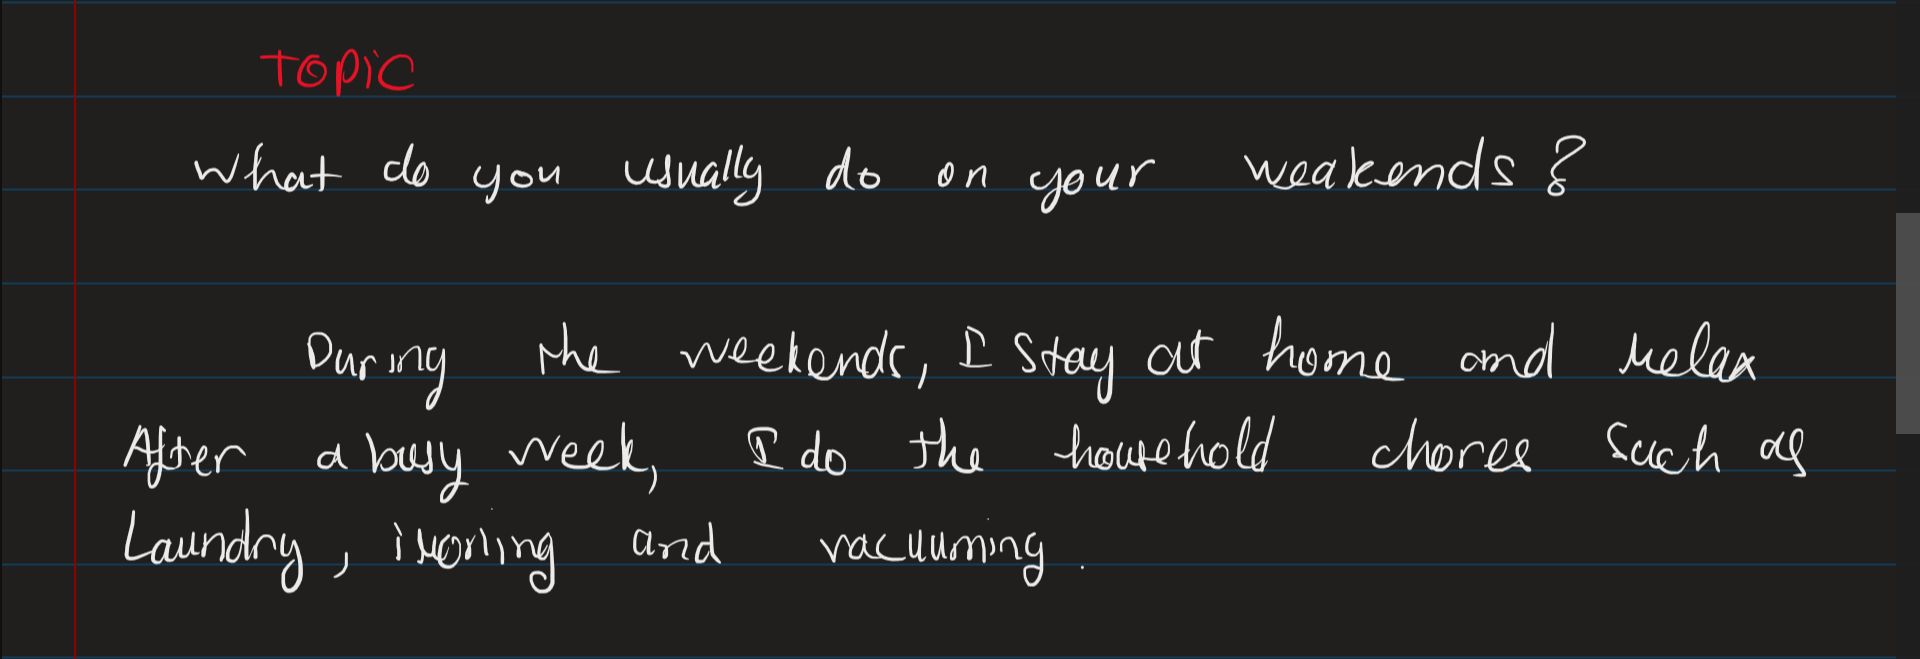 TOPIC
What do you usually do on your weakends?
During the weekends, I stay at home and relax
After a busy week, I do the household chores such as
Laundry, ironing and vacuuming.